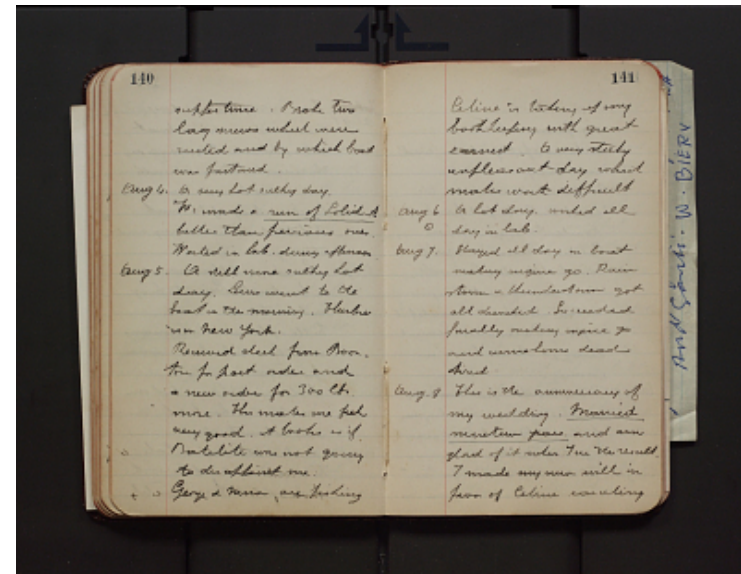 140
suppertime. Broke two
lag screws which were
rusted and by which boat
was fastened.
Aug 4. A very hot sultry day.
We made a run of Solid A
better than previous ones.
Worked in lab. during afternoon
Aug 5. A still more sultry hot
day. went to the
boat in the morning.
in New York.
Received check from Boon-
ton for part order and
a new order for 300 lbs.
more. This makes me feel
very good. It looks as if
Bakelite was not going
to disappoint me.
George & Nina are fishing
141
Celine is taking up my
bookkeeping with great
earnest. A very sticky
unpleasant day which
makes work difficult
Aug 6 A hot day. worked all
day in lab.
Aug 7. Stayed all day in boat
making engine go. Rain
storm & thunderstorm got
all drenched. Succeeded
finally making engine go
and came home dead
tired.
Aug. 8 This is the anniversary of
my wedding. Married
nineteen years and am
glad of it when I see the result.
I made my new will in
favor of Celine
W. BIERY